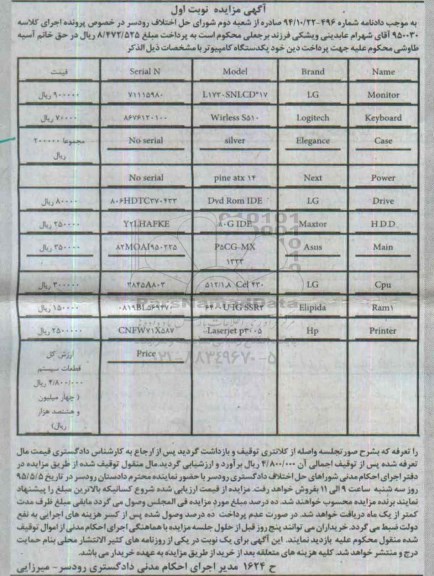 آگهی مزایده نوبت اول
به موجب دادنامه شماره ۴۹۶-۹۴/۱۰/۲۲ صادره از شعبه دوم شورای حل اختلاف رودسر در خصوص پرونده اجرای کلاسه
۹۵۰۰۳۰ آقای شهرام عابدینی ویشکی فرزند برجعلی محکوم است به پرداخت مبلغ ۸/۴۷۲/۵۲۵ ریال در حق خانم آسیه
طاوشی محکوم علیه جهت پرداخت دین خود یکدستگاه کامپیوتر با مشخصات ذیل الذکر
Name Brand Model Serial N قیمت
Monitor LG L۱۷۳-SNLCD"۱۷ ۷۱۱۱۵۹۸۰ ۹۰۰۰۰۰ ریال
Keyboard Logitech Wirless S۵۱۰ ۸۶۷۶۱۲۰۱۰۰ ۷۰۰۰۰ ریال
Case Elegance silver No serial مجموعا ۲۰۰۰۰۰ ریال
Power Next pine atx ۱۴ No serial
Drive LG Dvd Rom IDE ۸۰۶HDTC۲۷۰۴۳۳ ۸۰۰۰۰ ریال
H.D.D Maxtor ۸۰G IDE Y۲LHAFKE ۲۵۰۰۰۰ ریال
Main Asus P۵CG-MX ۱۳۳۳ ۸۲MOAI۹۵۰۲۲۵ ۳۵۰۰۰۰ ریال
Cpu LG ۵۱۲/۱.۸ Cel ۴۳۰ ۲۸۲۵A۸۰۳ ۳۰۰۰۰۰ ریال
Ram۱ Elipida ۱۵۰۰۰۰ ریال
Printer Hp Laserjet p۳۰۰۵ CNFW۷۱X۵۸۷ ۲۵۰۰۰۰۰ ریال
Price ارزش کل
قطعات سیستم
۴/۸۰۰/۰۰۰ ریال
( چهار میلیون
و هشتصد هزار
ریال)
۰۲۱-۸۸۳۴۹۶۷۰-۵
را تعرفه که بشرح صورتجلسه واصله از کلانتری توقیف و بازداشت گردید پس از ارجاع به کارشناس دادگستری قیمت مال
تعرفه شده پس از توقیف اجمالی آن ۴/۸۰۰/۰۰۰ ریال برآورد و ارزشیابی گردید.مال منقول توقیف شده از طریق مزایده در
دفتر اجرای احکام مدنی شوراهای حل اختلاف دادگستری رودسر با حضور نماینده محترم دادستان رودسر در تاریخ ۹۵/۵/۵
روز سه شنبه ساعت ۹ الی ۱۱ بفروش خواهد رفت. مزایده از قیمت ارزیابی شده شروع کسانیکه بالاترین مبلغ را پیشنهاد
نمایند برنده مزایده محسوب خواهند شد. ده درصد مبلغ مورد مزایده فی المجلس وصول می گردد مابقی مبلغ ظرف مدت
کمتر از یک ماه دریافت خواهد شد. در صورت عدم پرداخت ده درصد وصول شده پس از کسر هزینه های اجرایی به نفع
دولت ضبط می گردد. خریداران می توانند پنج روز قبل از حلول جلسه مزایده با هماهنگی اجرای احکام مدنی از اموال توقیف
شده منقول محکوم علیه بازدید نمایند. این آگهی برای یک نوبت در یکی از روزنامه های کثیر الانتشار محلی بنام حمایت
درج و منتشر خواهد شد. کلیه هزینه های متعلقه بعد از خرید از طریق مزایده به عهده خریدار می باشد.
ح ۱۶۲۴ مدیر اجرای احکام مدنی دادگستری رودسر- میرزایی